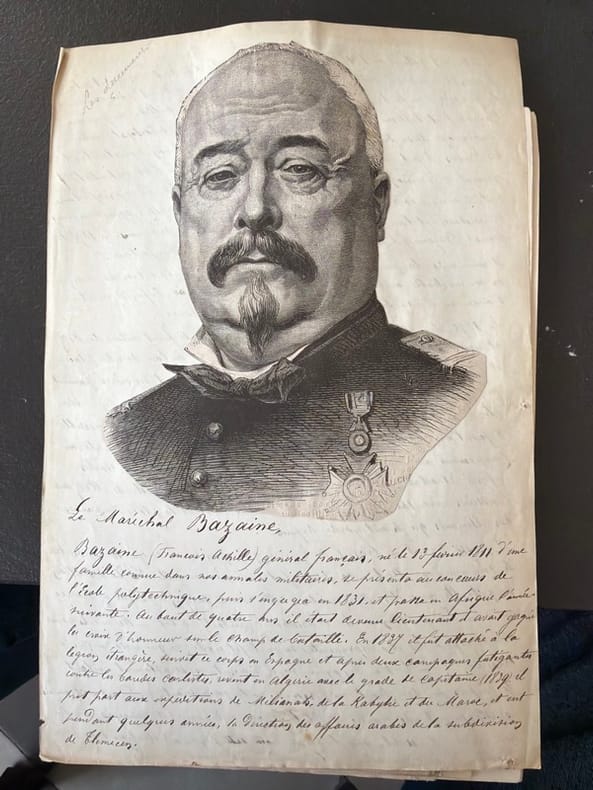 Le Maréchal Bazaine,
Bazaine (François Achille) général français, né le 13 février 1811 d'une
famille connue dans nos annales militaires, se présenta au concours de
l'école polytechnique, puis s'engagea en 1831, et passa en Afrique l'année
suivante. Au bout de quatre ans il était devenu lieutenant et avait gagné
la croix d'honneur sur le champ de bataille. En 1837 il fut attaché à la
légion étrangère, suivit ce corps en Espagne et après deux campagnes fatigantes
contre les bandes Carlistes, revint en Algérie avec le grade de Capitaine (1839) il
prit part aux expéditions de Milianah, de la Kabylie et du Maroc, et eut
pendant quelques années, la Direction des affaires arabes de la subdivision
de Tlemecen.